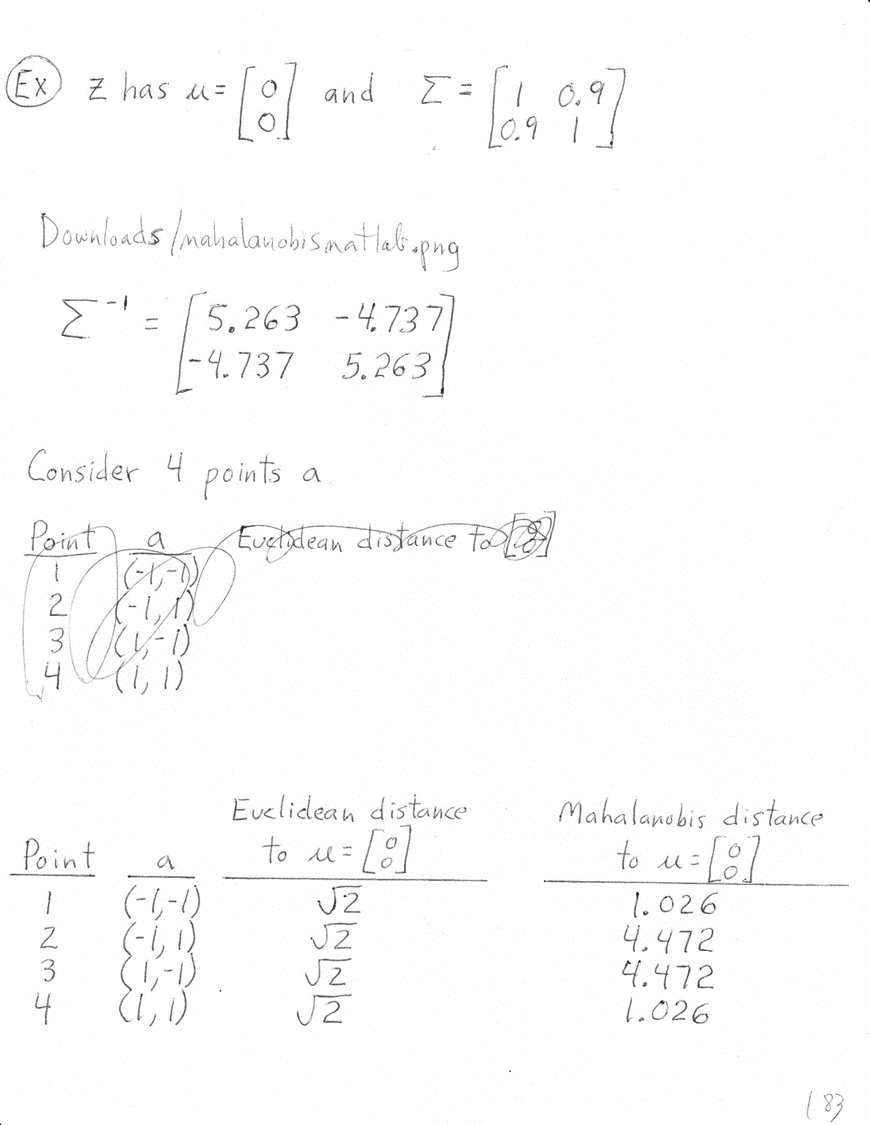 Ex z has μ = [0 0] and Σ = [1 0.9 0.9 1]
Downloads/mahalanobismatlab.png
Σ⁻¹ = [5.263 -4.737 -4.737 5.263]
Consider 4 points a
Point a Euclidean distance to [0 0]
1 (-1,-1)
2 (-1, 1)
3 (1,-1)
4 (1, 1)
Euclidean distance Mahalanobis distance
Point a to μ = [0 0] to μ = [0 0]
1 (-1,-1) √2 1.026
2 (-1, 1) √2 4.472
3 (1,-1) √2 4.472
4 (1, 1) √2 1.026
183